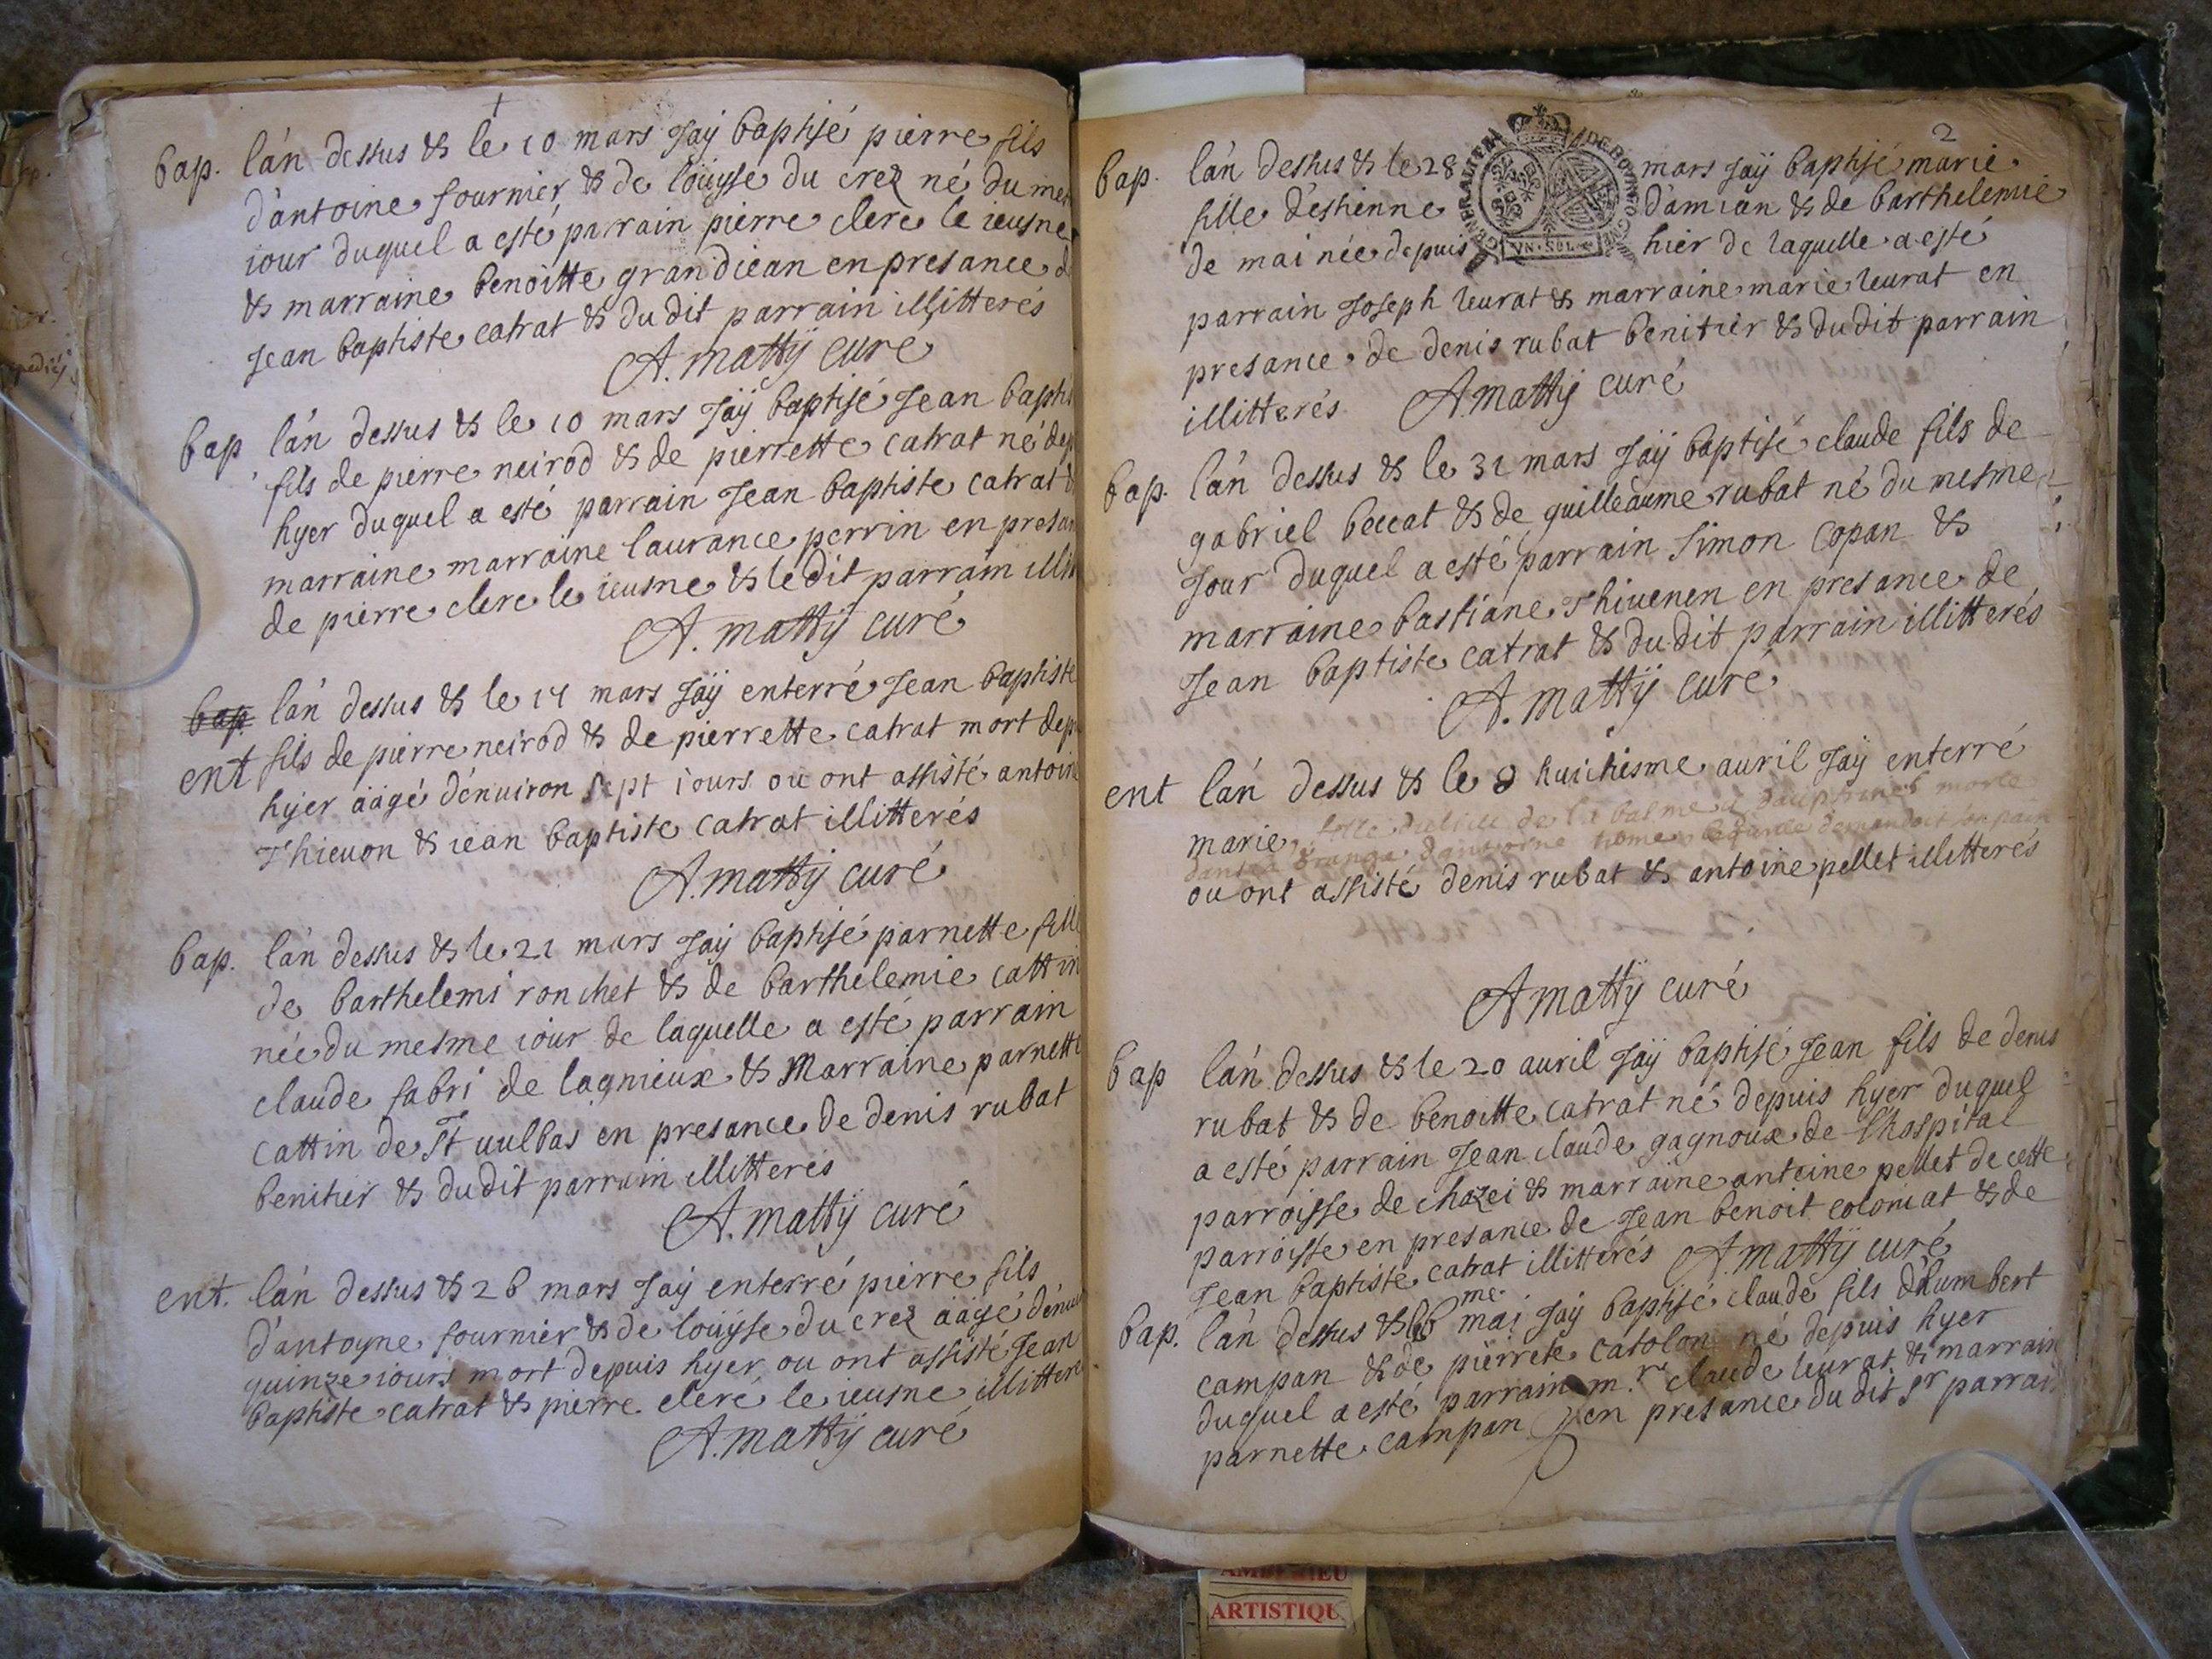 bap. lán dessus & le 10 mars Jaÿ baptisé pierre fils
d'antoine fournier & de loüyse du crez né du
iour duquel a esté parrain pierre clerc le ieusne
& marraine benoitte grandiean en presance
Jean baptiste catrat & du dit parrain illitterés
A. mattÿ curé
bap lán dessus & le 10 mars Jaÿ baptisé Jean
fils de pierre neirod & de pierrette catrat né
hyer duquel a esté parrain Jean baptiste catrat
marraine marraine laurance perrin en
de pierre clerc le ieusne & le dit parrain
A. mattÿ curé
bap lán dessus & le 14 mars Jaÿ enterré Jean baptiste
ent fils de pierre neirod & de pierrette catrat mort
hyer aägé dénuiron sept iours ou ont assisté antoine
Thieuon & iean baptiste catrat illitterés
A. mattÿ curé
bap. lán dessus & le 21 mars Jaÿ baptisé parnette fille
de barthelemi ronchet & de barthelemie cattin
née du mesme iour de laquelle a esté parrain
claude fabri de lagnieux & Marraine parnette
cattin de St uulbas en presance de denis rubat
benitier & du dit parrain illitterés
A. mattÿ curé
ent. lán dessus & 26 mars Jaÿ enterré pierre fils
d'antoyne fournier & de loüyse du crez aägé
quinze iours mort depuis hyer ou ont assisté Jean
baptiste catrat & pierre clerc le ieusne
A. mattÿ curé
2
GENERALITE DE BOURGOGNE
VN·SOL
bap. lán dessus & le 28 mars Jaÿ baptisé marie
fille d'estienne d'amian & de barthelemie
de mai née depuis hier de laquelle a esté
parrain Joseph leurat & marraine marie leurat en
presance de denis rubat benitier & du dit parrain
illitterés A. mattÿ curé
bap. lán dessus & le 31 mars Jaÿ baptisé claude fils de
gabriel beccat & de guilleaume rubat né du mesme
Jour duquel a esté parrain Simon Copan &
marraine bastiane Thiuenen en presance de
Jean baptiste catrat & du dit parrain illitterés
A. mattÿ curé
ent lán dessus & le 8 huichisme auril Jaÿ enterré
marie de la balme morte
d'antoine demandoit son pain
ou ont assisté denis rubat & antoine pellet illitterés
A mattÿ curé
bap lán dessus & le 20 auril Jaÿ baptisé Jean fils de denis
rubat & de benoitte catrat né depuis hyer duquel
a esté parrain Jean claude gagnoux de lhospital
parroisse de chazei & marraine antoine pellet de cette
parroisse en presance de Jean benoit coloniat & de
Jean baptiste catrat illitterés A. mattÿ curé
bap. lán dessus & me. mai Jaÿ baptisé claude fils d'humbert
campan & de pierrete catolon né depuis hyer
duquel a esté parrain m.r claude leurat & marrain
parnette campan en presance du dit Sr
AMBERIEU
ARTISTIQU